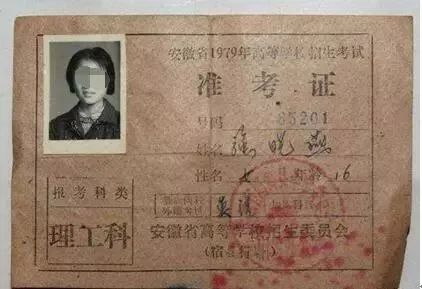 安徽省1979年高等学校招生考试
准考证
号码 65201
姓名 晓燕
性名 女 年龄 16
报考科类
理工科
外语考试 英语
安徽省高等学校招生委员会
(宿县行署)